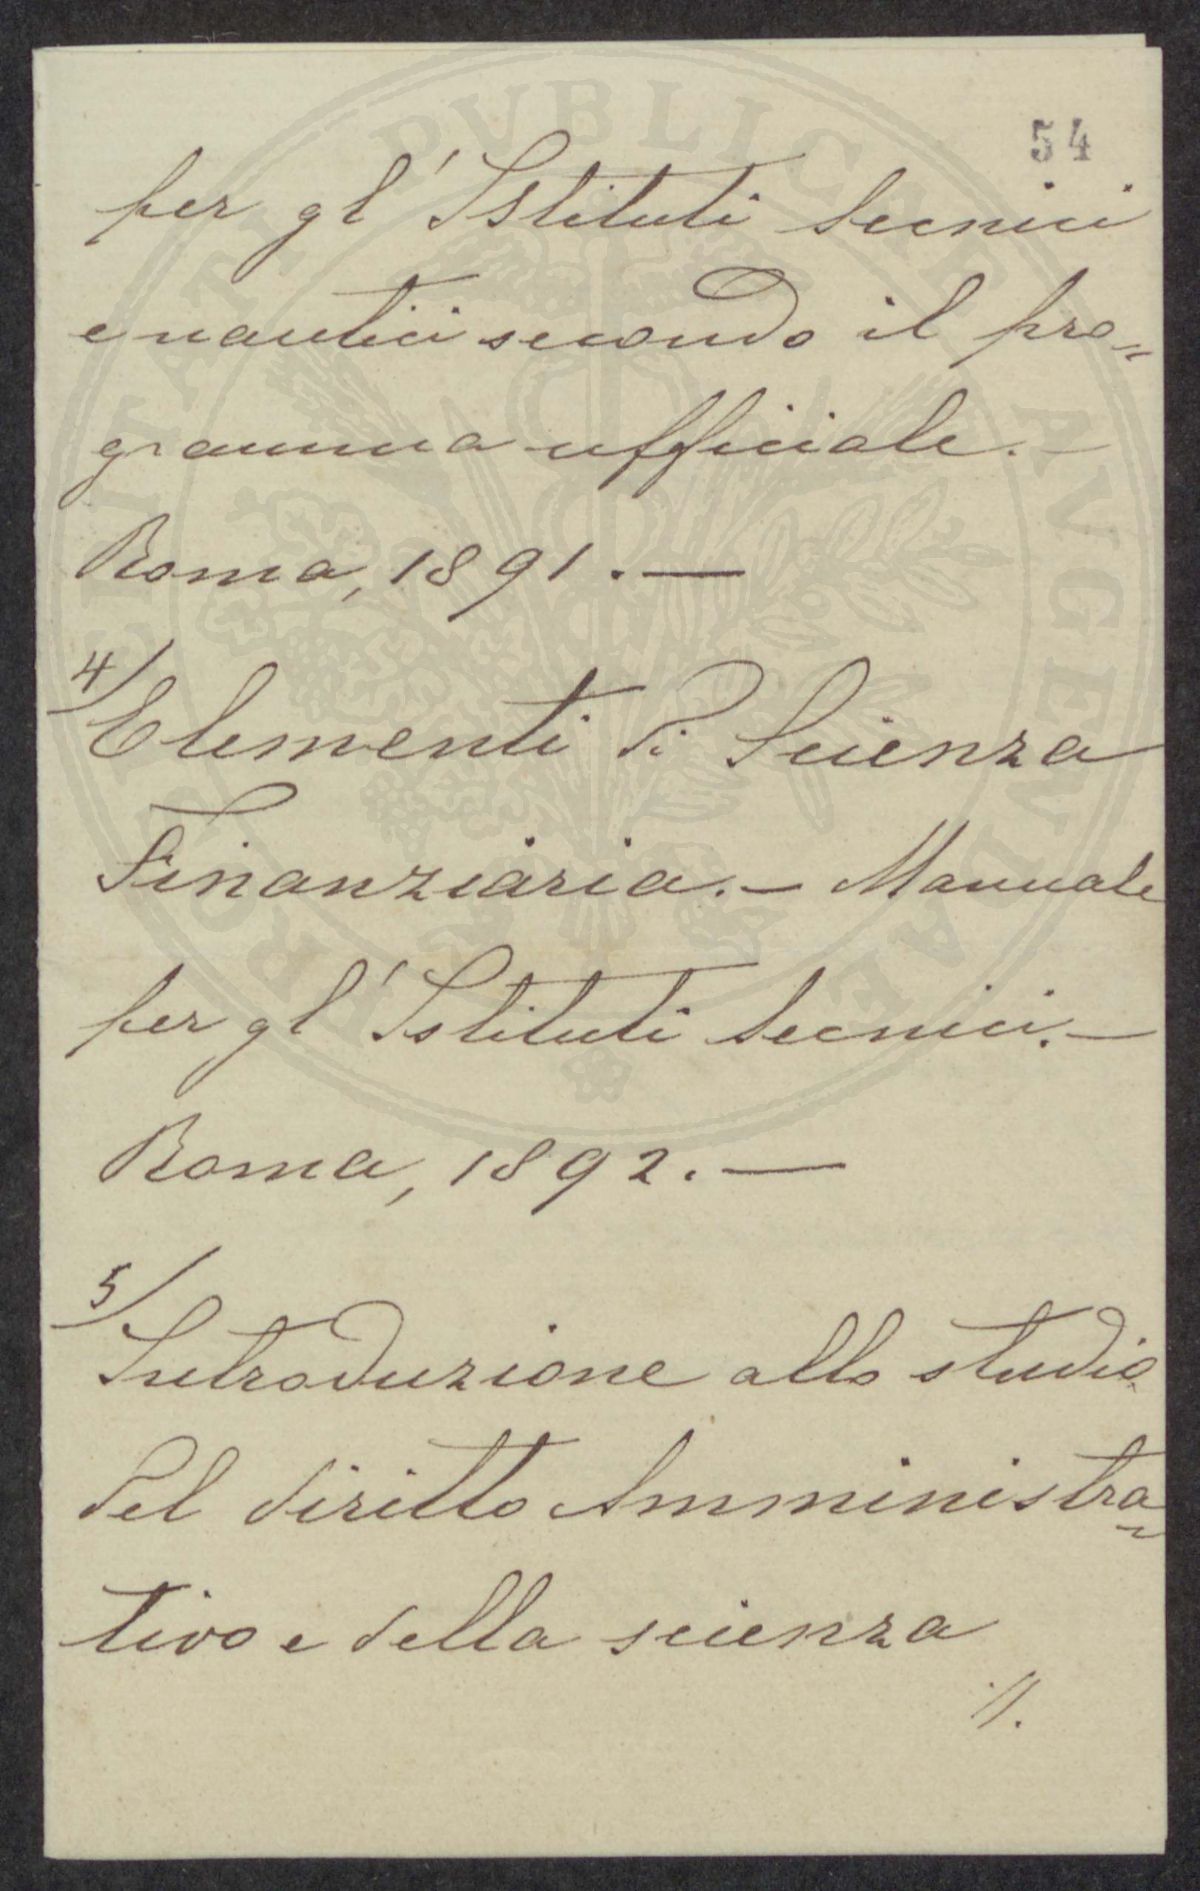 54
per gl'Istituti tecnici
e nautici secondo il pro=
gramma ufficiale. —
Roma, 1891. —
4/ Elementi di Scienza
Finanziaria. — Manuale
per gl'Istituti tecnici. —
Roma, 1892. —
5/ Introduzione allo studio
del diritto Amministra=
tivo e della scienza
·/.